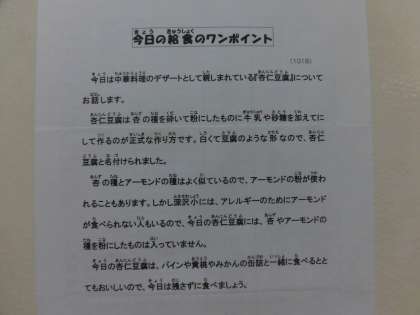 今日の給食のワンポイント
(10/8)
今日は中華料理のデザートとして親しまれている『杏仁豆腐』について
お話します。
杏仁豆腐は杏の種を砕いて粉にしたものに牛乳や砂糖を加えてに
して作るのが正式な作り方です。白くて豆腐のような形なので、杏仁
豆腐と名付けられました。
杏の種とアーモンドの種はよく似ているので、アーモンドの粉が使わ
れることもあります。しかし深沢小には、アレルギーのためにアーモンド
が食べられない人もいるので、今日の杏仁豆腐には、杏やアーモンドの
種を粉にしたものは入っていません。
今日の杏仁豆腐は、パインや黄桃やみかんの缶詰と一緒に食べると
とてもおいしいので、今日は残さずに食べましょう。